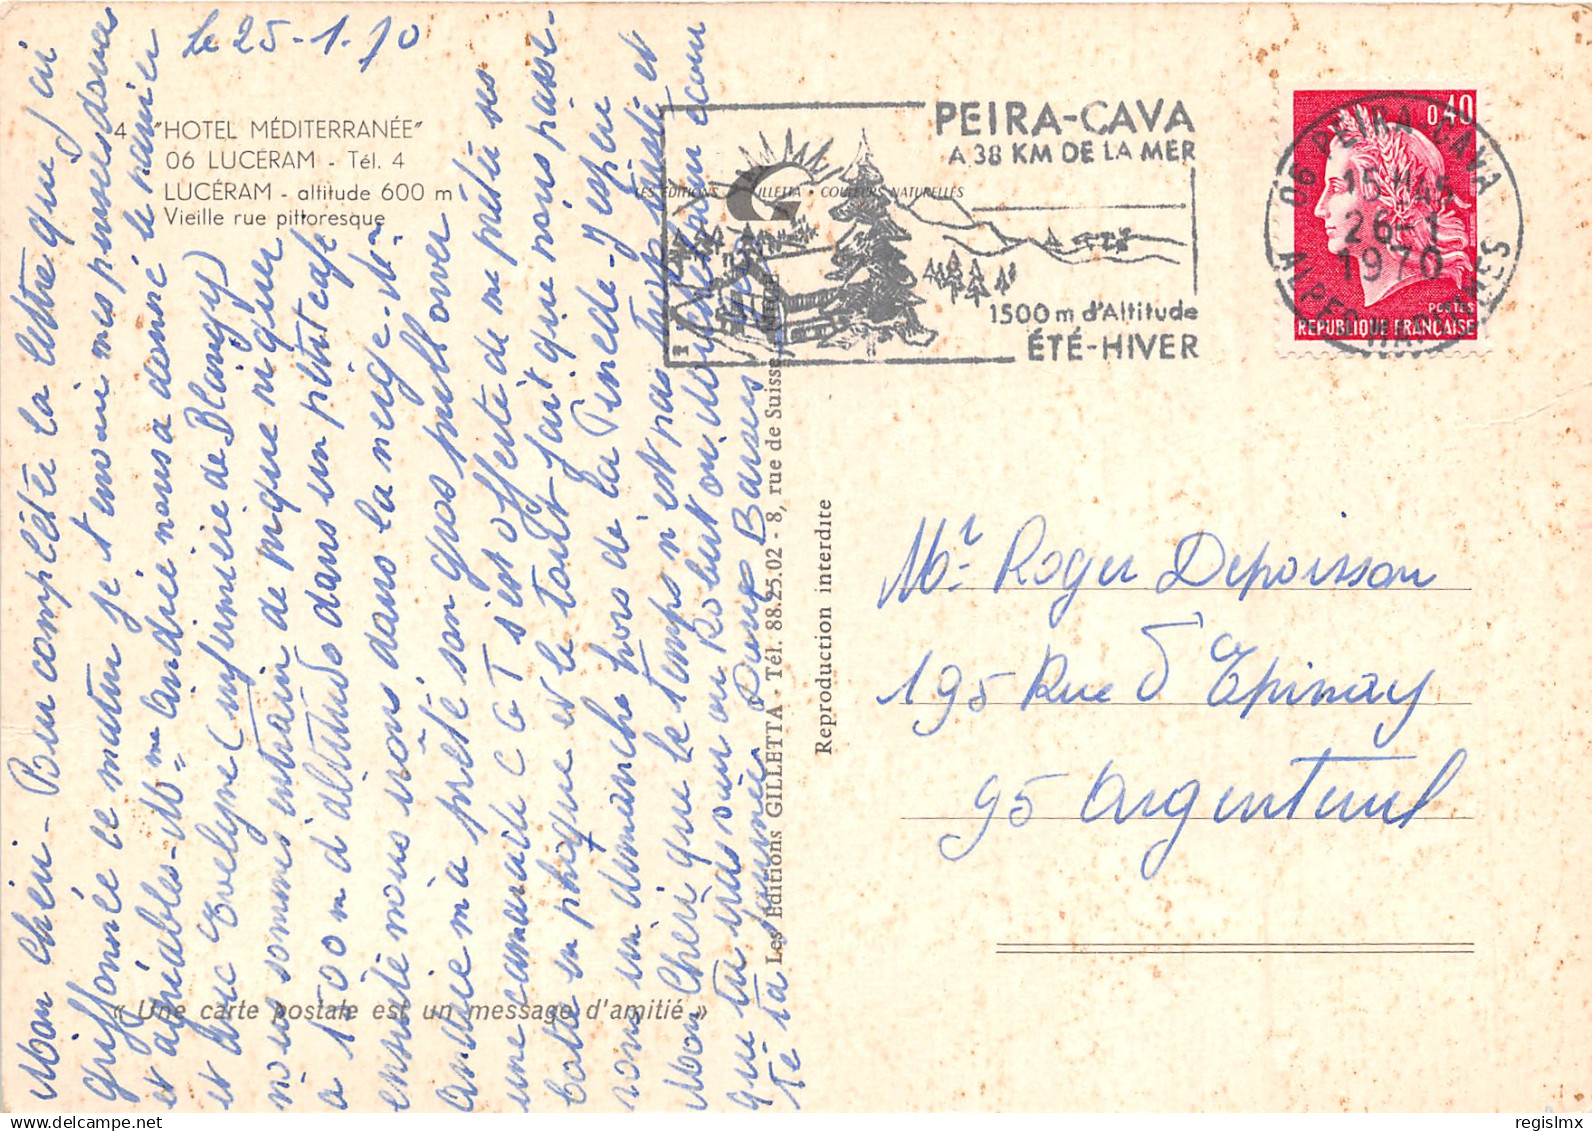 Le 25-1-70
4 "HOTEL MÉDITERRANÉE"
06 LUCÉRAM - Tél. 4
LUCÉRAM - altitude 600 m
Vieille rue pittoresque
Mon Chéri - Pour compléter la lettre que j'ai
griffonnée ce matin je t'envoie mes pensées douces
et aimables - Mme Andrée nous a donné le panier
et avec Evelyne (infirmière de Blangy)
nous sommes en train de pique niquer
à 1500 m d'altitude dans un petit café
ensuite nous irons dans la neige -
Andrée m'a prêté son gros pull over
une camarade CGT s'est offerte de me prêter ses
bottes en plastique et le tout fait que nous passe-
rons un dimanche hors de la Pinède - J'espère
Mon Chéri que le temps n'est pas trop triste et
que tu vas voir ou Robert ou
ta journée. Doux Baisers
« Une carte postale est un message d'amitié »
Les Editions GILLETTA - Tél. 88.25.02 - 8, rue de Suisse,
Reproduction interdite
LES EDITIONS GILLETTA - COULEURS NATURELLES
PEIRA-CAVA
A 38 KM DE LA MER
1500 m d'Altitude
ÉTÉ-HIVER
0,40
POSTES
REPUBLIQUE FRANÇAISE
06 PEIRA-CAVA
15H45
26-1
1970
ALPES MARITIMES
Mr Roger Depoisson
195 Rue d'Epinay
95 Argenteuil
regislmx